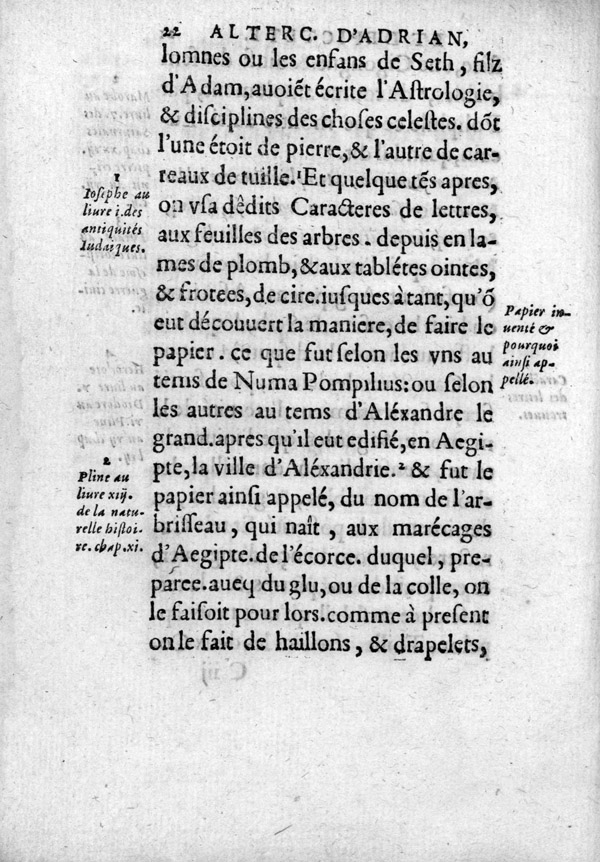 22 ALTERC. D'ADRIAN,
lomnes ou les enfans de Seth, filz
d'Adam, auoiẽt écrite l'Aſtrologie,
& diſciplines des choſes celeſtes. dõt
l'une étoit de pierre, & l'autre de car-
reaux de tuille.¹ Et quelque tẽs apres,
on vſa dêdits Caracteres de lettres,
aux feuilles des arbres. depuis en la-
mes de plomb, & aux tablétes ointes,
& frotees, de cire. iuſques à tant, qu'õ
eut découuert la maniere, de faire le
papier. ce que fut ſelon les vns au
tems de Numa Pompilius: ou ſelon
lés autres au tems d'Aléxandre le
grand. apres qu'il eut edifié, en Aegi-
pte, la ville d'Aléxandrie.² & fut le
papier ainſi appelé, du nom de l'ar-
briſſeau, qui naît, aux marécages
d'Aegipte. de l'écorce. duquel, pre-
paree. aueq du glu, ou de la colle, on
le faiſoit pour lors. comme à preſent
on le fait de haillons, & drapelets,
1
Ioſephe au
liure i. des
antiquités
Iudaïques.
Papier in-
uenté &
pourquoi
ainſi ap-
pellé.
2
Pline au
liure xiij.
de la natu-
relle hiſtoi-
re. chap. xi.